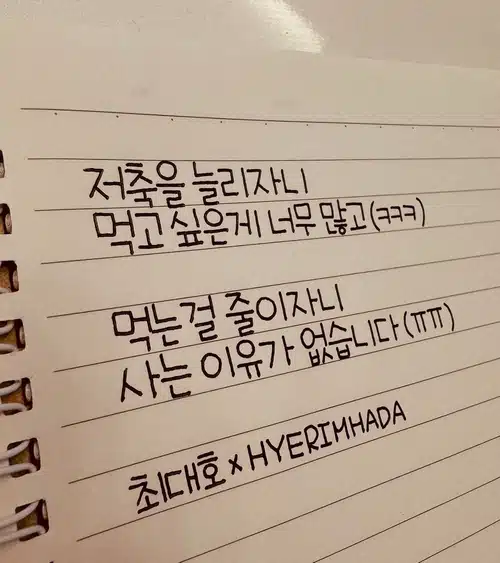 저축을 늘리자니
먹고 싶은게 너무 많고 (ㅋㅋㅋ)
먹는걸 줄이자니
사는 이유가 없습니다 (ㅠㅠ)
최대호 x HYERIMHADA